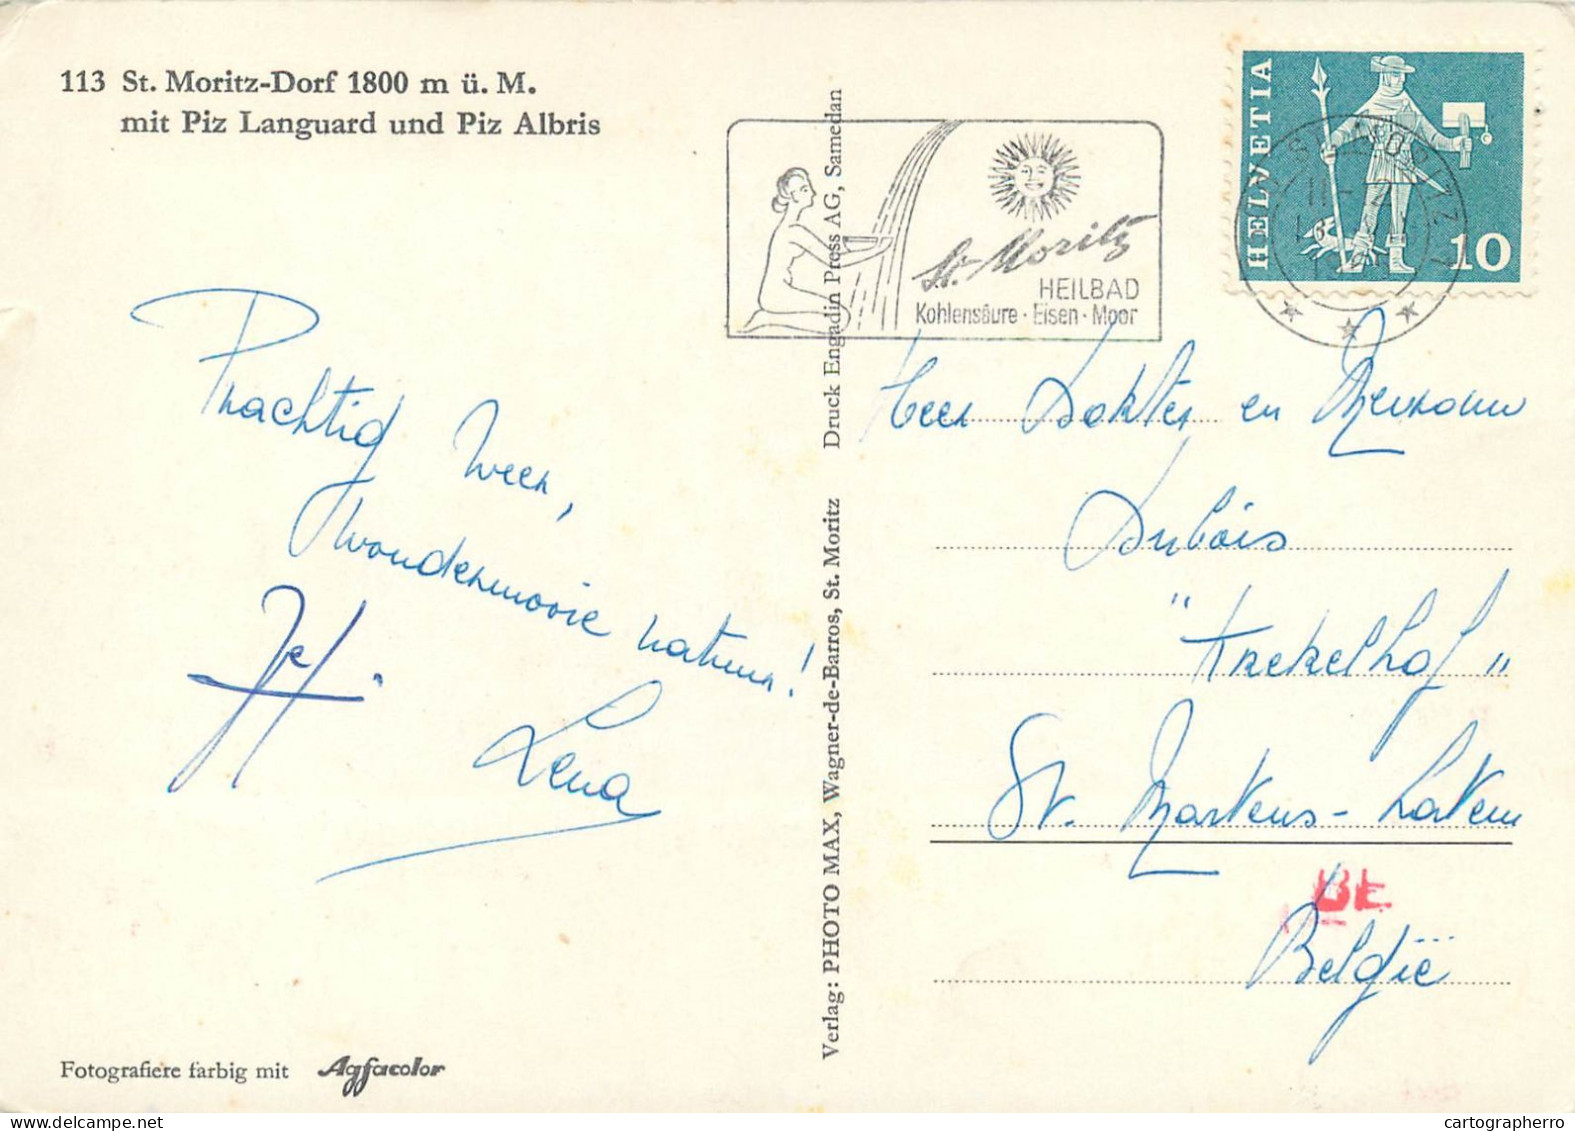 113 St. Moritz-Dorf 1800 m ü. M.
mit Piz Languard und Piz Albris
Prachtig weer,
wondermooie natuur!
Jef.
Lena
Fotografiere farbig mit Agfacolor
Verlag: PHOTO MAX, Wagner-de-Barros, St. Moritz Druck Engadin Press AG, Samedan
St. Moritz
HEILBAD
Kohlensäure · Eisen · Moor
HELVETIA
10
Heer Dokter en Mevrouw
Dubois
"Krekelhof"
St. Martens-Latem
BE
België
delcampe.net
cartographerro